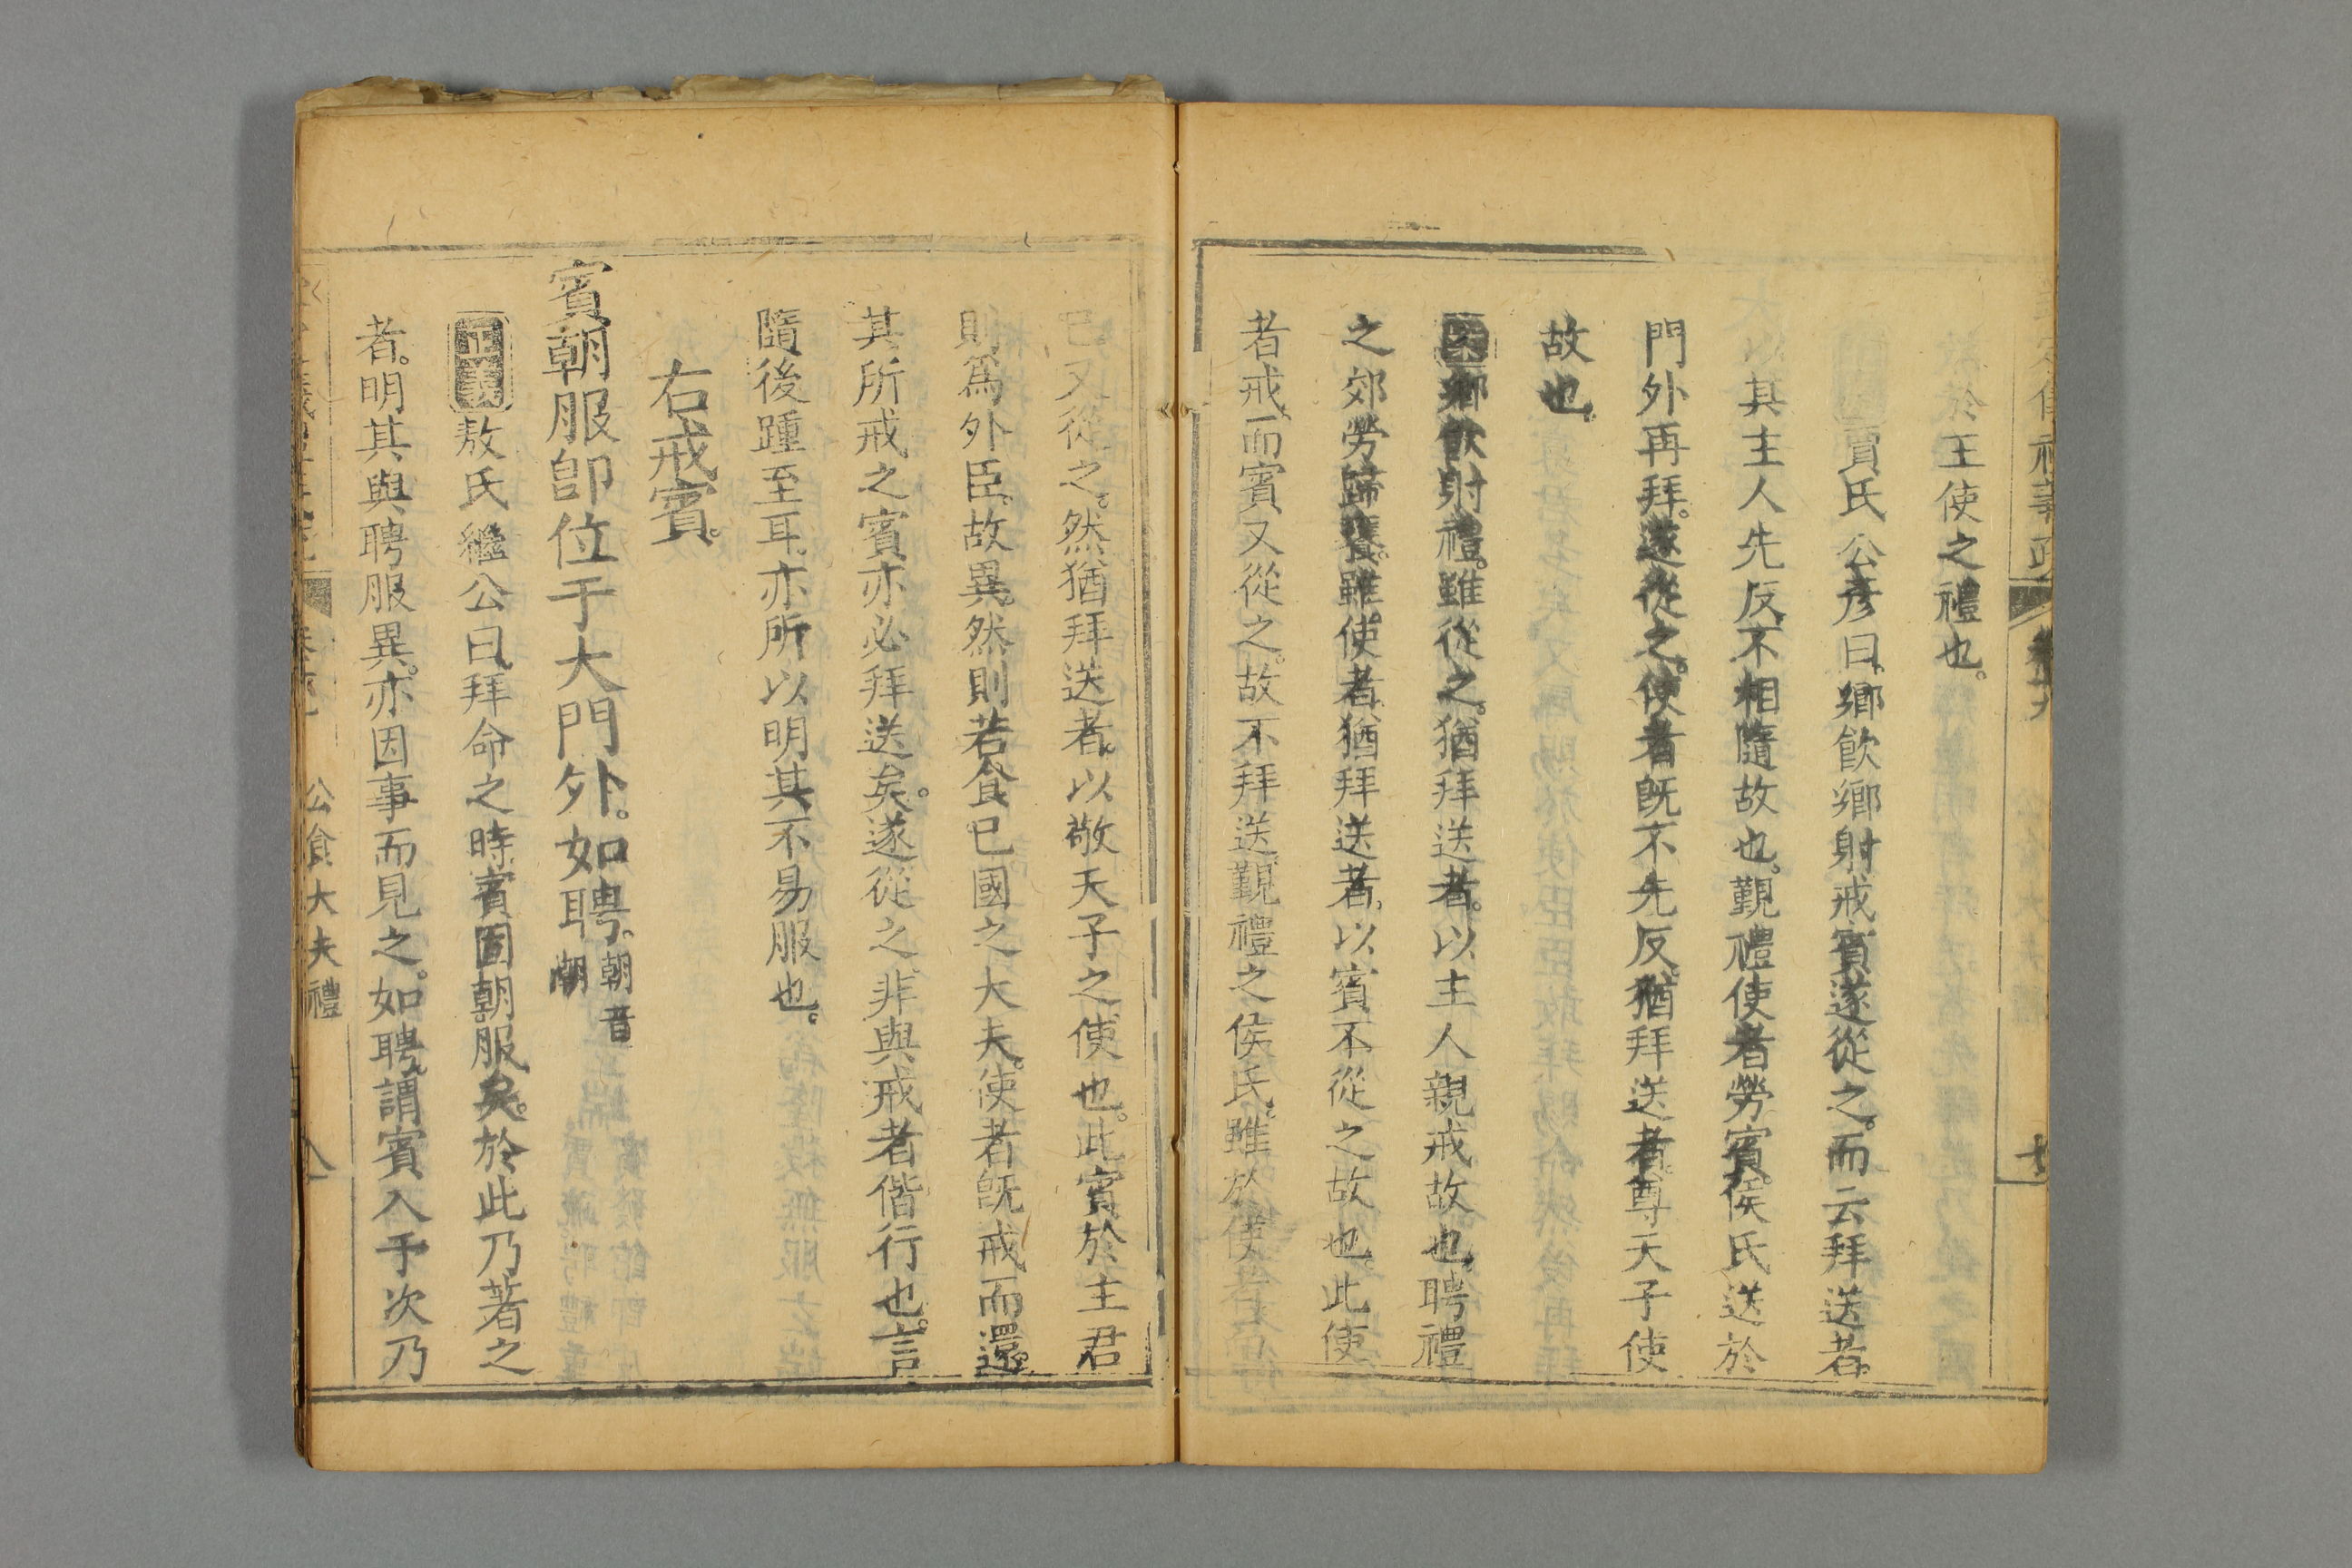 於王使之禮也。
賈氏公彥曰。鄉飲鄉射戒賓遂從之。而云拜送者。
其主人先反。不相隨故也。覲禮使者勞賓。侯氏送於
門外再拜。遂從之。使者旣不先反。猶拜送者。尊天子使
故也。
案鄉飲射禮。雖從之。猶拜送者。以主人親戒故也。聘禮
之郊勞歸饔。雖使者猶拜送者。以賓不從之故也。此使
者戒。而賓又從之。故不拜送。覲禮之侯氏。雖於使者
已又從之。然猶拜送者。以敬天子之使也。此賓於主君
則爲外臣。故異。然則若食已國之大夫。使者旣戒而還。
其所戒之賓亦必拜送矣。遂從之。非與戒者偕行也。言
隨後踵至耳。亦所以明其不易服也。
右戒賓。
賓朝服卽位于大門外。如聘。朝音潮
正義敖氏繼公曰。拜命之時。賓固朝服矣。於此乃著之
者。明其與聘服異。亦因事而見之。如聘。謂賓入于次乃
公食大夫禮